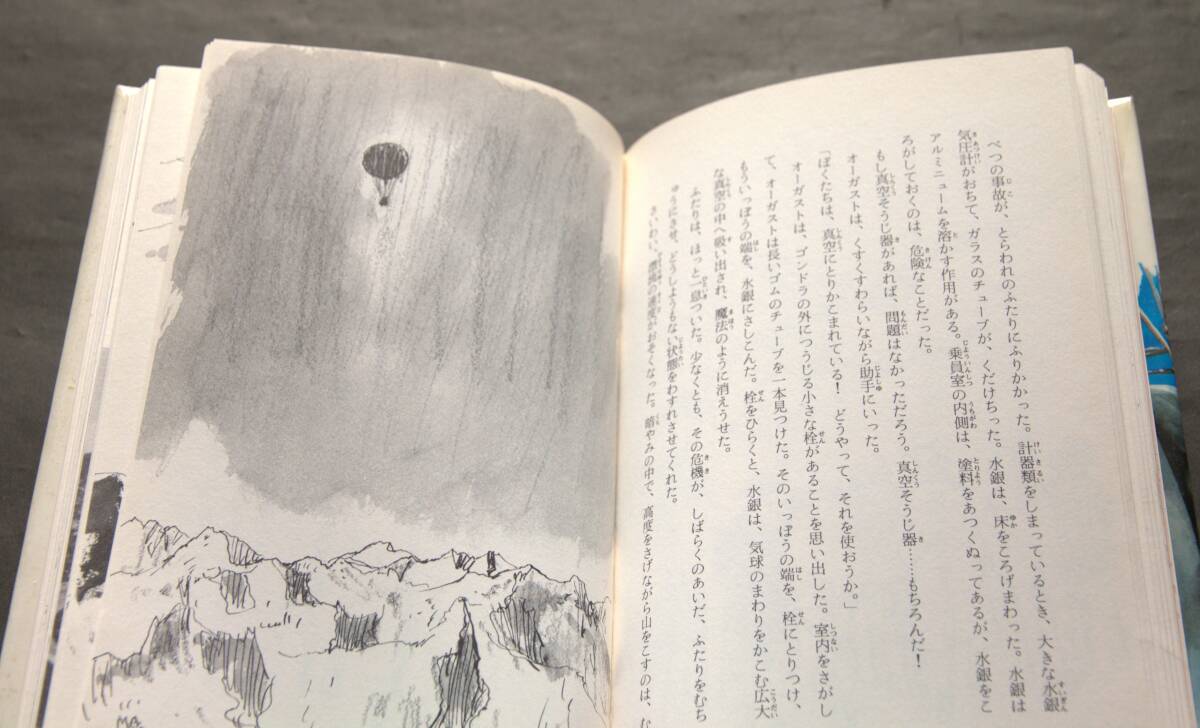 べつの事故が、とらわれのふたりにふりかかった。計器類をしまっているとき、大きな水銀
気圧計がおちて、ガラスのチューブが、くだけちった。水銀は、床をころげまわった。水銀は
アルミニュームを溶かす作用がある。乗員室の内側は、塗料をあつくぬってあるが、水銀をこ
ろがしておくのは、危険なことだった。
もし真空そうじ器があれば、問題はなかっただろう。真空そうじ器……もちろんだ！
オーガストは、くすくすわらいながら助手にいった。
「ぼくたちは、真空にとりかこまれている！　どうやって、それを使おうか。」
オーガストは、ゴンドラの外につうじる小さな栓があることを思い出した。室内をさがし
て、オーガストは長いゴムのチューブを一本見つけた。そのいっぽうの端を、栓にとりつけ、
もういっぽうの端を、水銀にさしこんだ。栓をひらくと、水銀は、気球のまわりをかこむ広大
な真空の中へ吸い出され、魔法のように消えうせた。
ふたりは、ほっと一息ついた。少なくとも、その危機が、しばらくのあいだ、ふたりをむち
ゅうにさせ、どうしようもない状態をわすれさせてくれた。
さいわい、夜間の速度がおそくなった。暗やみの中で、高度をさげながら山をこすのは、む